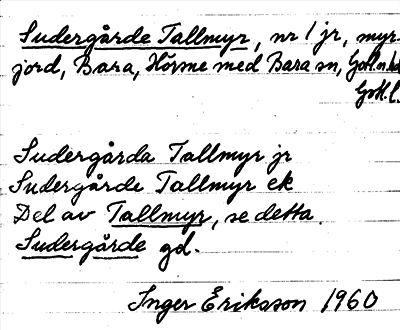 Sudergårde Tallmyr, nr 1 jr, myr-
jord, Bara, Hörsne med Bara sn, Gotl.n.hd
Gotl.l.
Sudergårda Tallmyr jr
Sudergårde Tallmyr ek
Del av Tallmyr, se detta.
Sudergårde gd.
Inger Erikson 1960